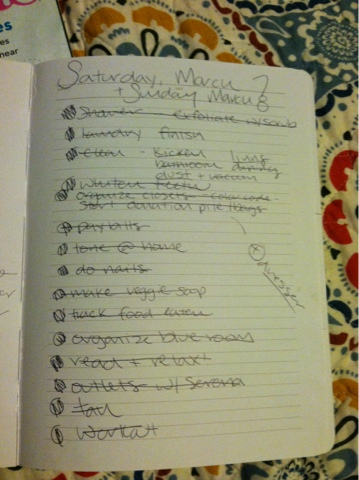 es
near
Saturday, March 7
+ Sunday March 8
Shower - exfoliate w/scrub
laundry finish
clean - kichen living
bathroom dining
dust + vacuum
whiten teeth
organize closets - color code -
start donation pile/bags
pay bills
tone @ home
do nails
make veggie soup
track food eaten
organize blue room
read + relax!
outlets w/ Serena
tan
workout
dresser